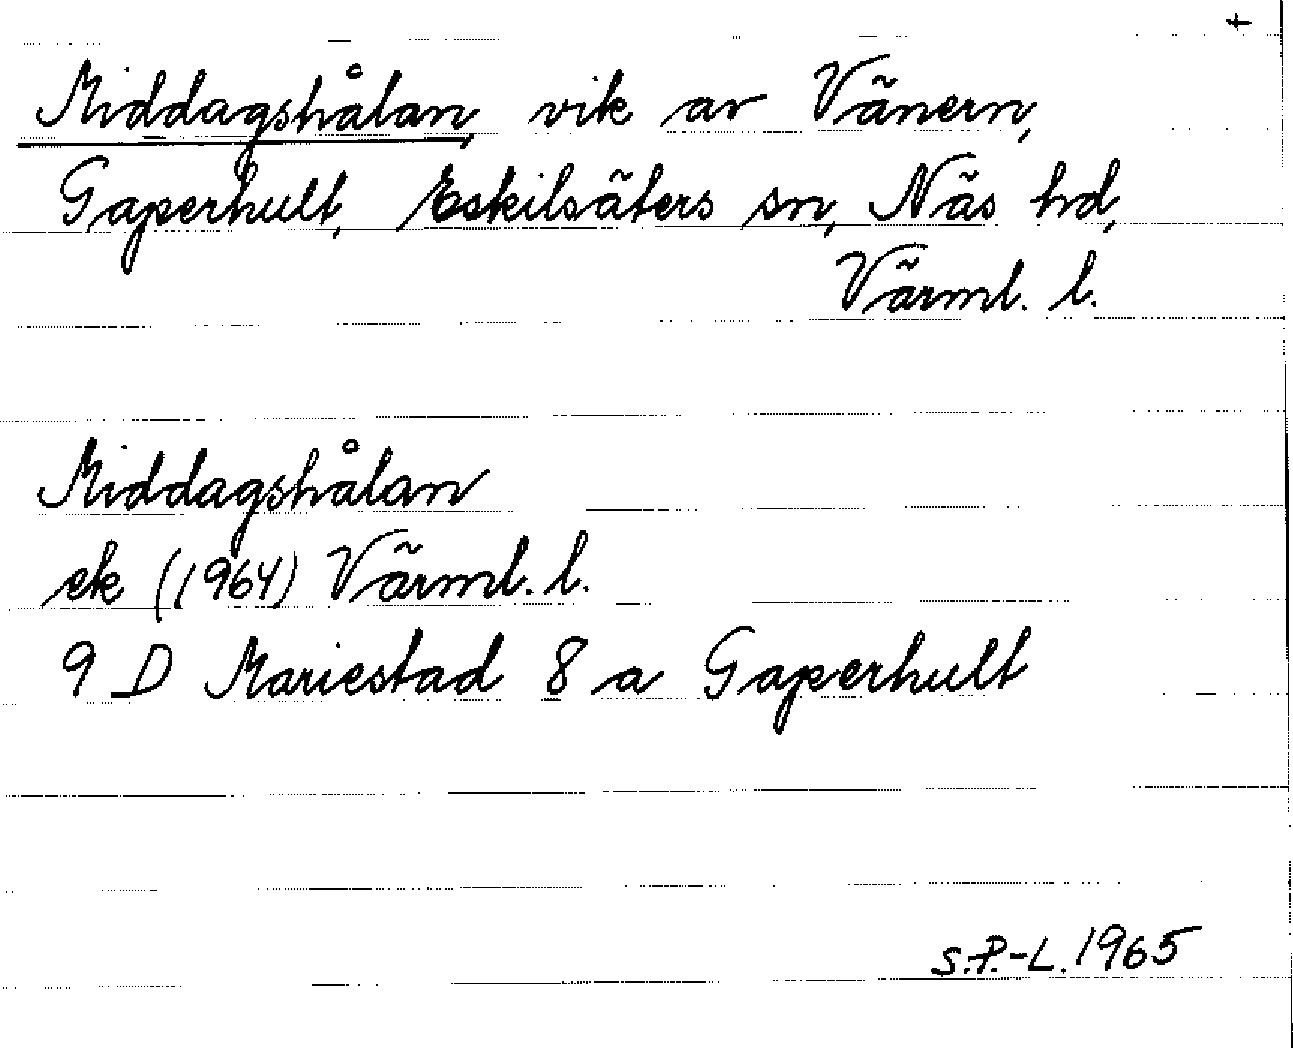 Middagshålan, vik av Vänern,
Gaperhult, Eskilsäters sn, Näs hd,
Värml. l.
Middagshålan
ek (1964) Värml. l.
9 D Mariestad 8 a Gaperhult
S.P.-L. 1965